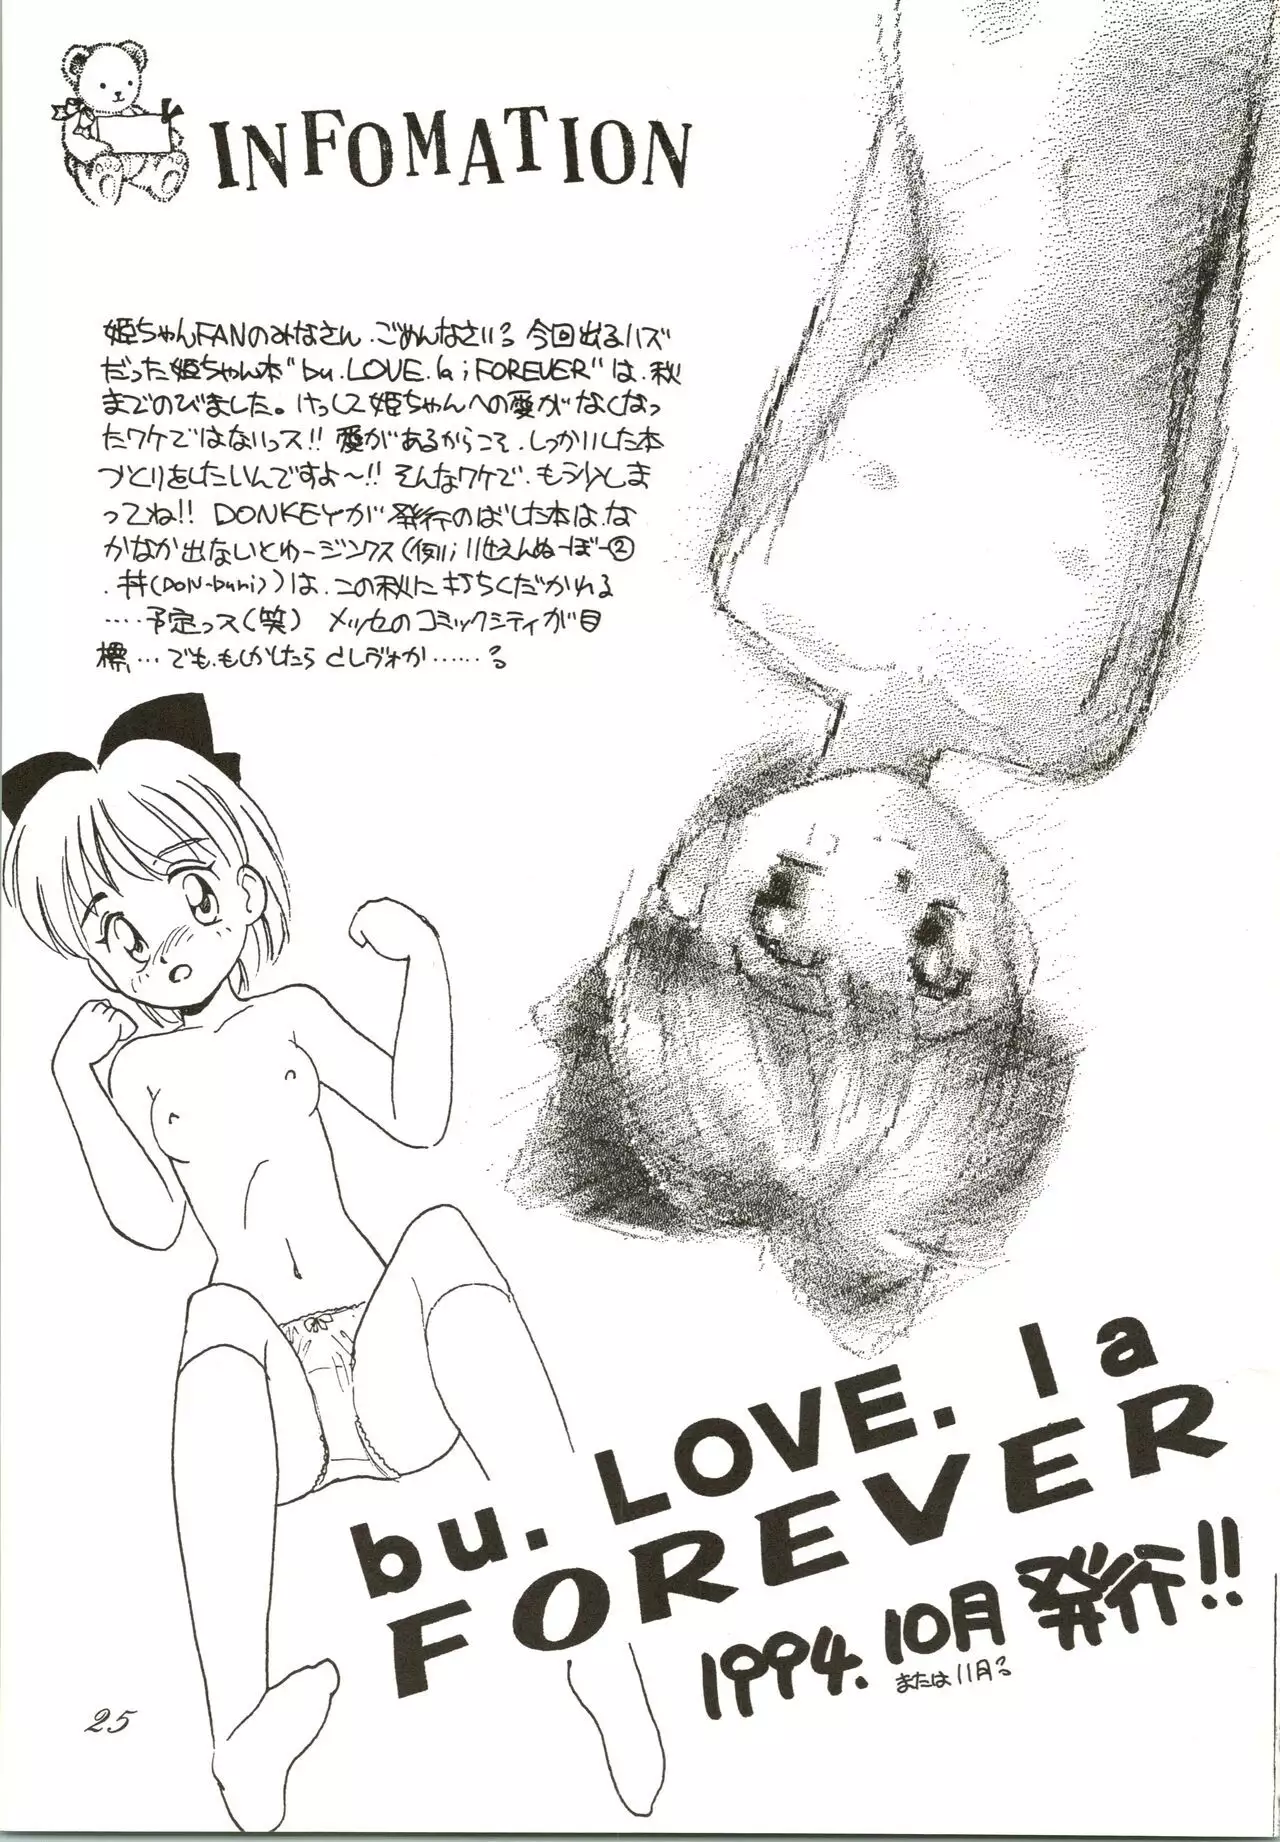 INFOMATION
姫ちゃんFANのみなさん、ごめんなさい。今回出るハズ
だった姫ちゃん本"bu.LOVE.la ; FOREVER"は、秋
までのびました。けっして姫ちゃんへの愛がなくなっ
たワケではないっス!! 愛があるからこそ、しっかりした本
づくりをしたいんですよ〜!! そんなワケで、もう少しま
ってね!! DONKEYが発行のばした本は、な
かなか出ないとゆージンクス(例;
.丼(DON-buri))は、この秋に打ちくだかれる
....予定っス(笑) メッセのコミックシティが目
標...でも、もしかしたら
bu. LOVE. la
FOREVER
1994. 10月 発行!!
または11月
25